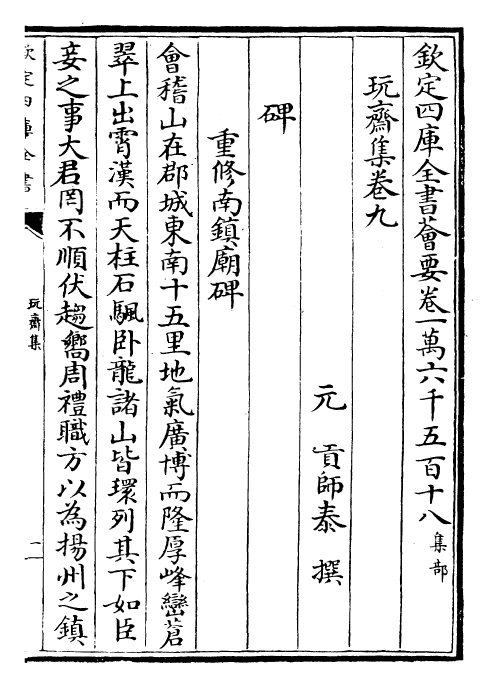 欽定四庫全書薈要卷一萬六千五百十八集部
玩齋集卷九
元 貢師泰 撰
碑
重修南鎮廟碑
會稽山在郡城東南十五里地氣廣博而隆厚峰巒蒼
翠上出霄漢而天柱石颿卧龍諸山皆環列其下如臣
妾之事大君罔不順伏趨嚮周禮職方以為揚州之鎮
欽定四庫全書
玩齋集
一